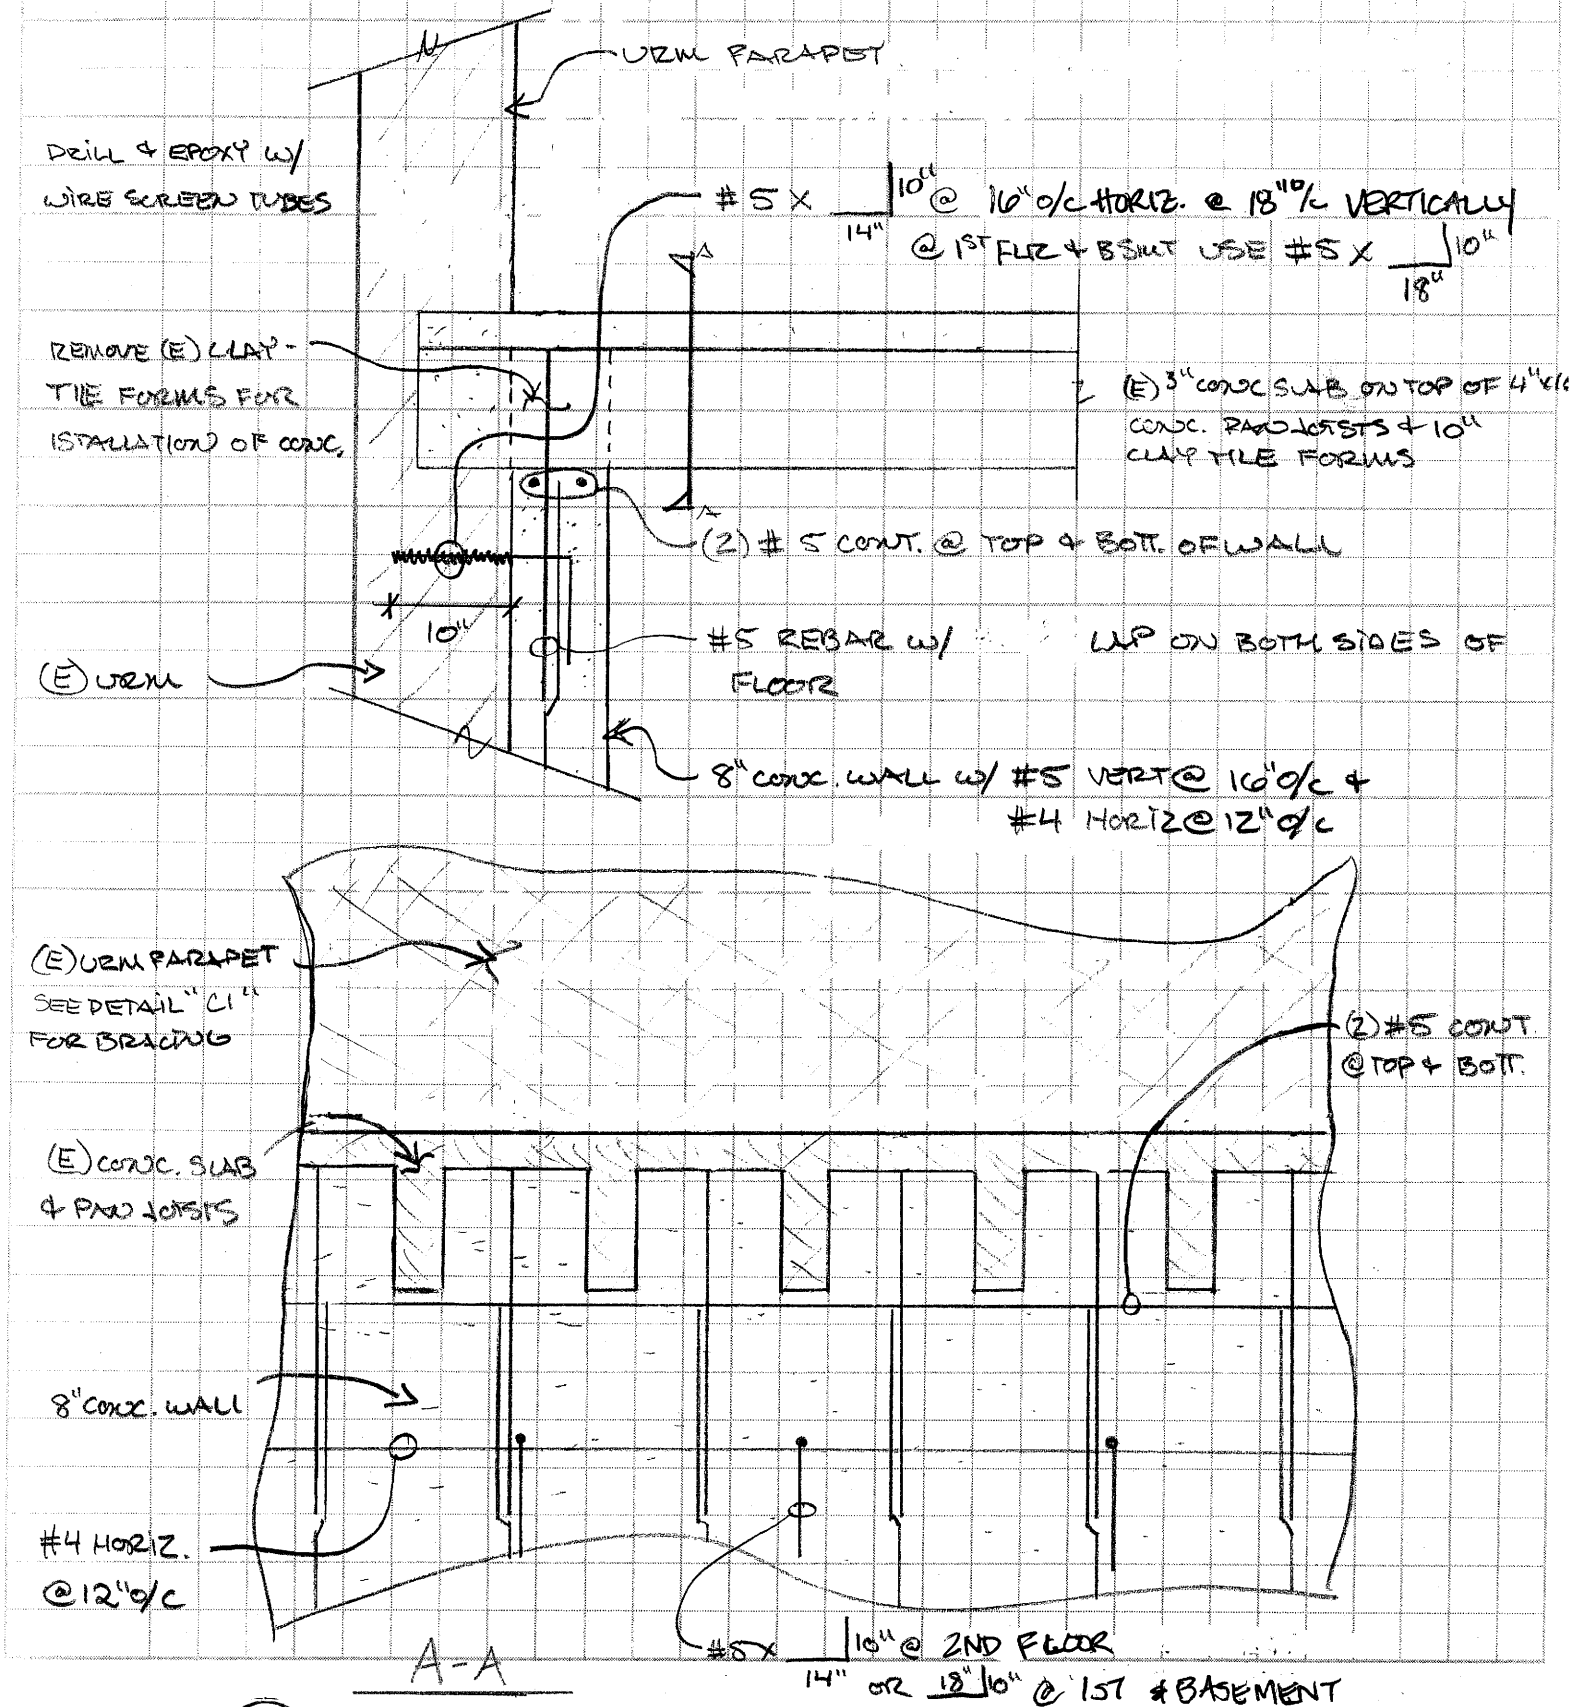 URM PARAPET
DRILL & EPOXY W/
WIRE SCREEN TUBES
#5 X 14" 10" @ 16" O/C HORIZ. @ 18" O/C VERTICALLY
@ 1ST FLR & BSMT USE #5 X 18" 10"
A
REMOVE (E) CLAY-
TILE FORMS FOR
ISTALLATION OF CONC.
(E) 3" CONC SLAB ON TOP OF 4"
CONC. PAN JOISTS & 10"
CLAY TILE FORMS
A
(2) #5 CONT. @ TOP & BOTT. OF WALL
10"
#5 REBAR W/ LAP ON BOTH SIDES OF
FLOOR
(E) URM
8" CONC. WALL W/ #5 VERT @ 16" O/C &
#4 HORIZ @ 12" O/C
(E) URM PARAPET
SEE DETAIL "C1"
FOR BRACING
(2) #5 CONT.
@ TOP & BOTT.
(E) CONC. SLAB
& PAN JOISTS
8" CONC. WALL
#4 HORIZ.
@ 12" O/C
#5 X 14" 10" @ 2ND FLOOR
OR 18" 10" @ 1ST & BASEMENT
A-A